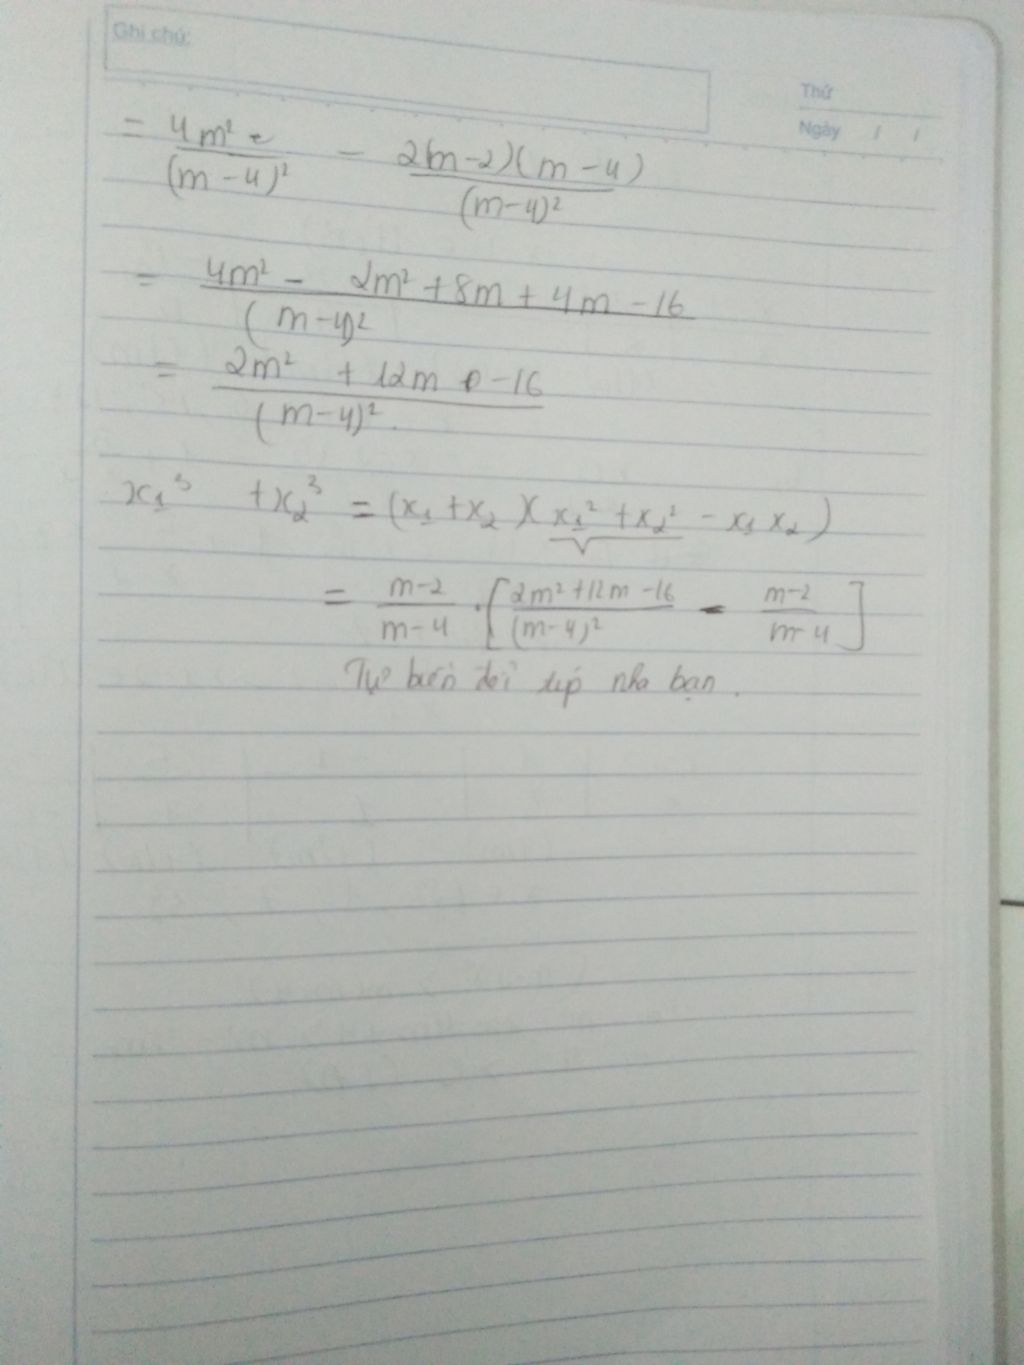 Ghi chú:
Thứ
Ngày / /
= 4m² / (m-4)² - 2(m-2)(m-4) / (m-4)²
= 4m² - 2m² + 8m + 4m - 16 / (m-4)²
= 2m² + 12m - 16 / (m-4)².
x₁³ + x₂³ = (x₁ + x₂)(x₁² + x₂² - x₁x₂)
= m-2 / m-4 . [2m² + 12m - 16 / (m-4)² - m-2 / m-4]
Tự biến đổi tiếp nha bạn.